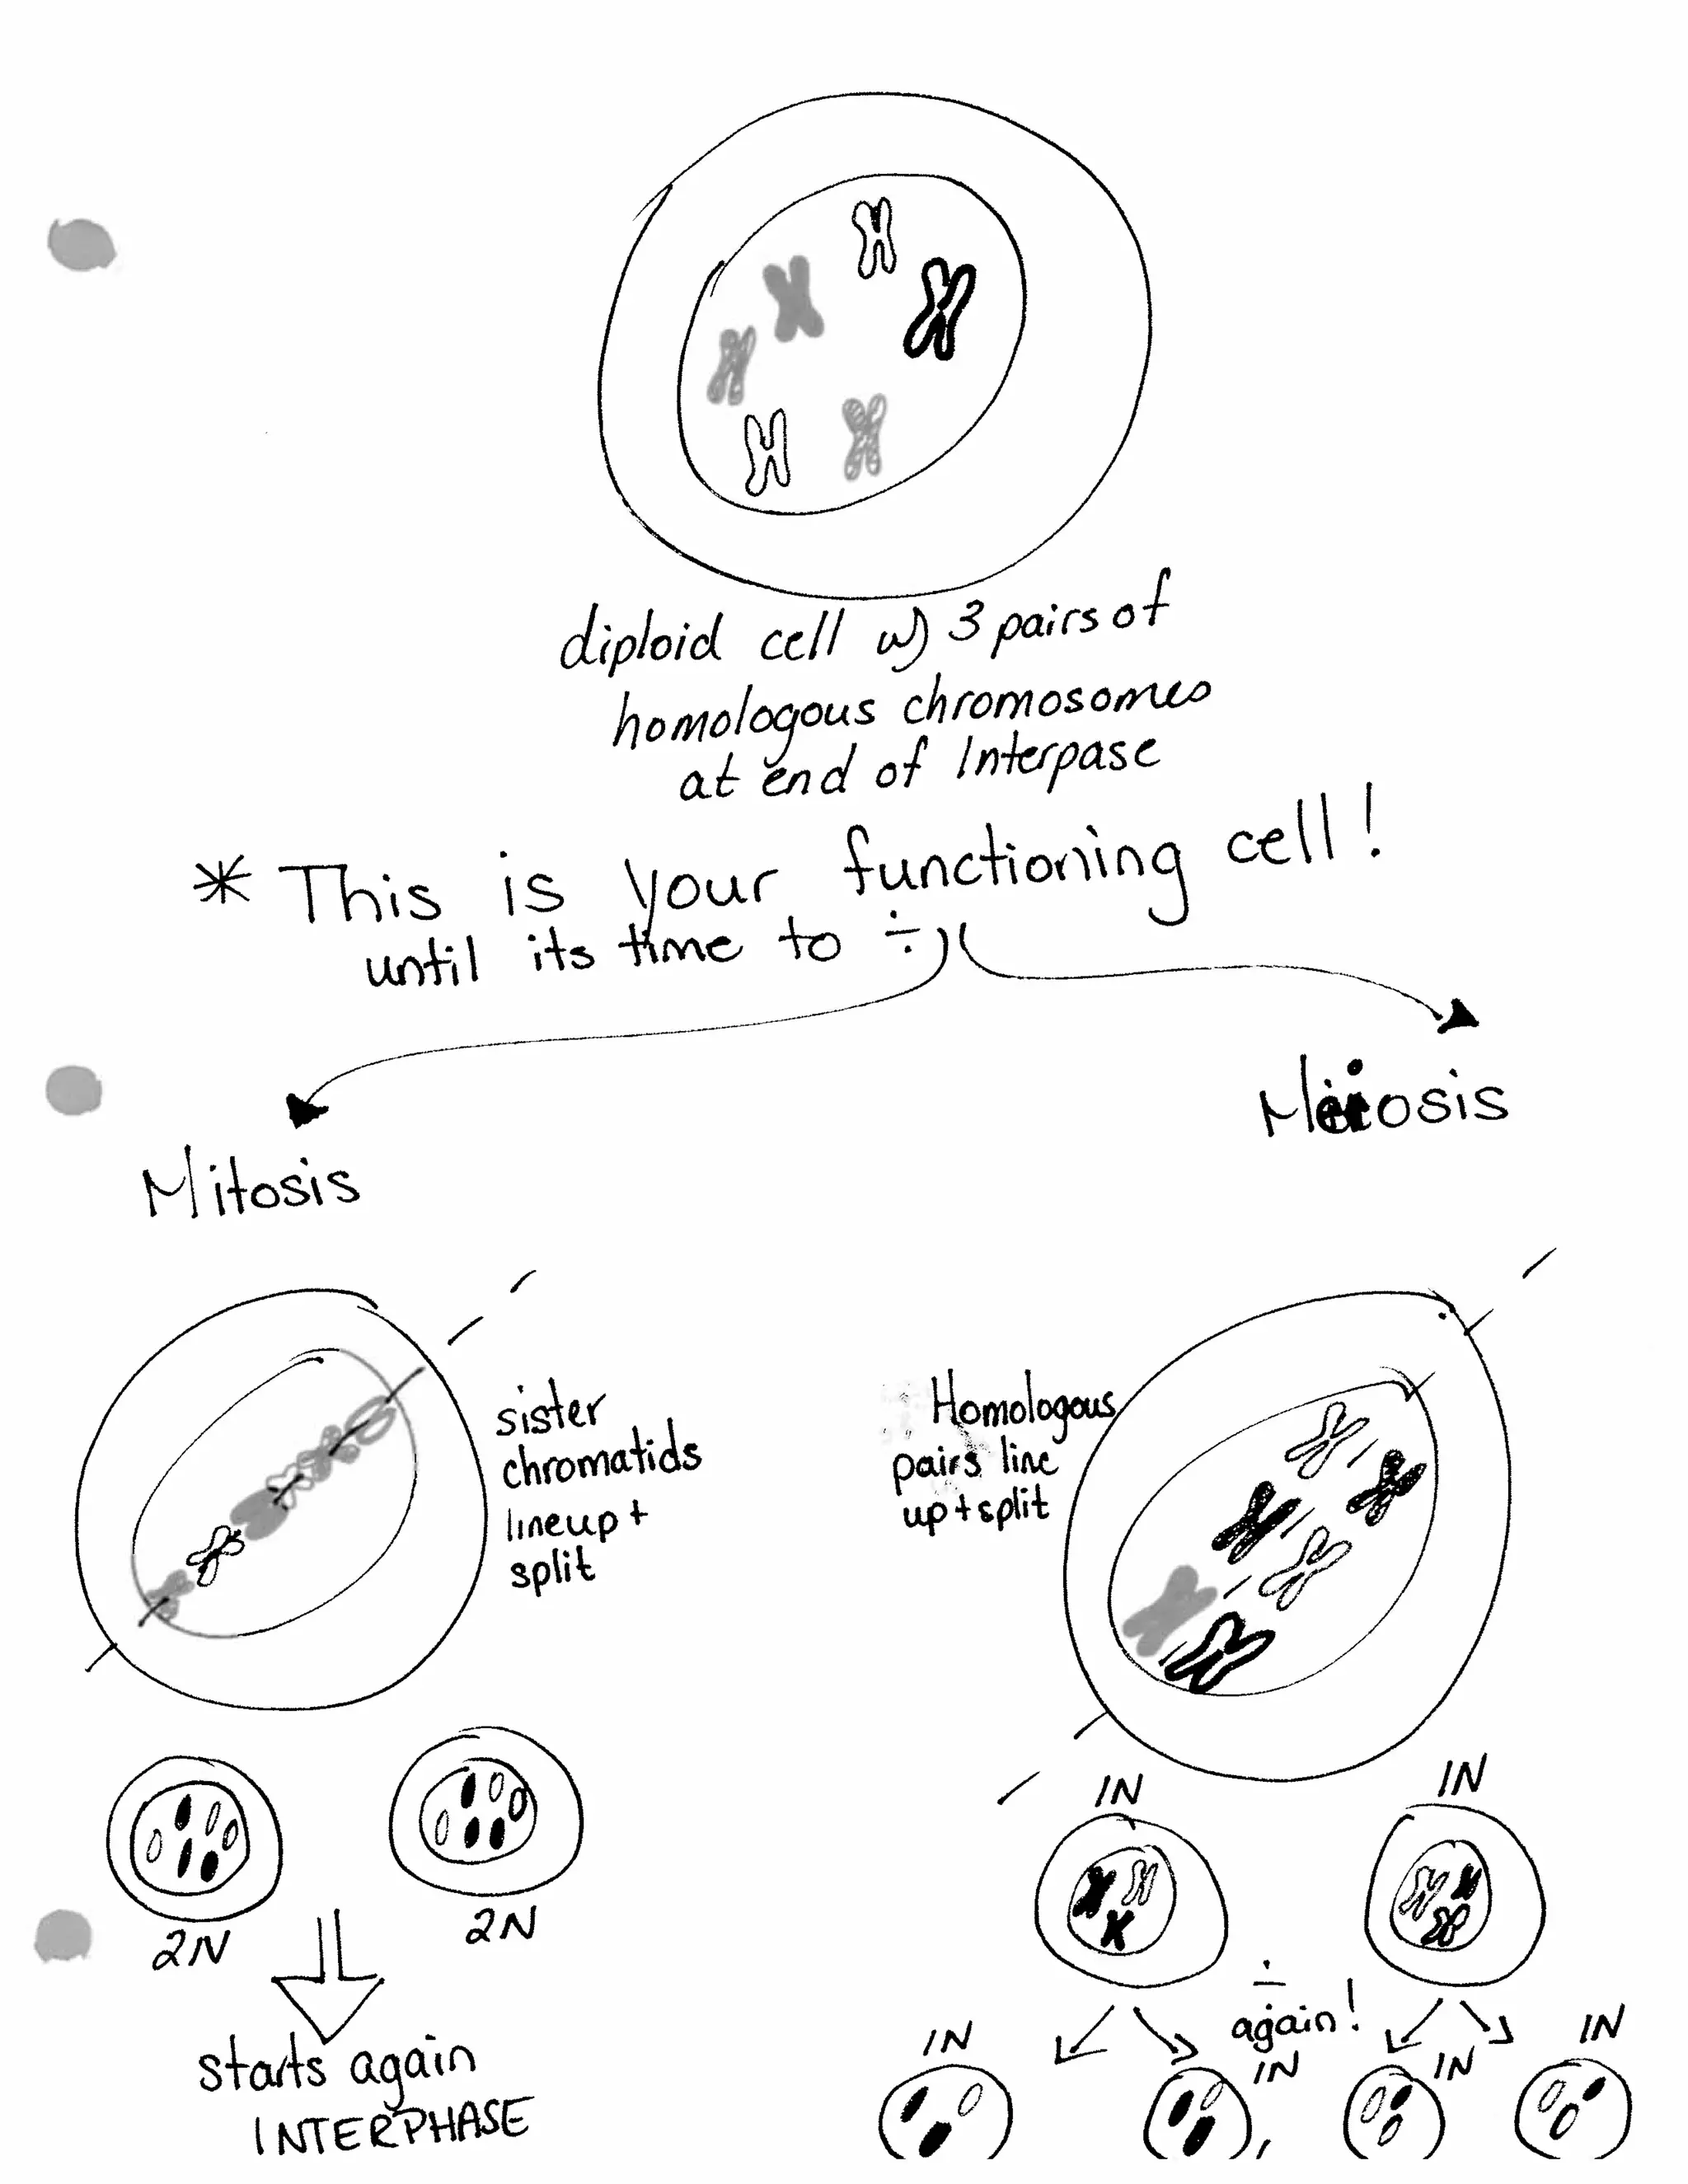 diploid cell w) 3 pairs of
homologous chromosomes
at end of Interpase
* This is your functioning cell!
until its time to ÷
Mitosis
Meiosis
sister
chromatids
lineup +
split
Homologous
pairs line
up + split
2N
2N
starts again
INTERPHASE
1N
1N
÷
again!
1N
1N
1N
1N